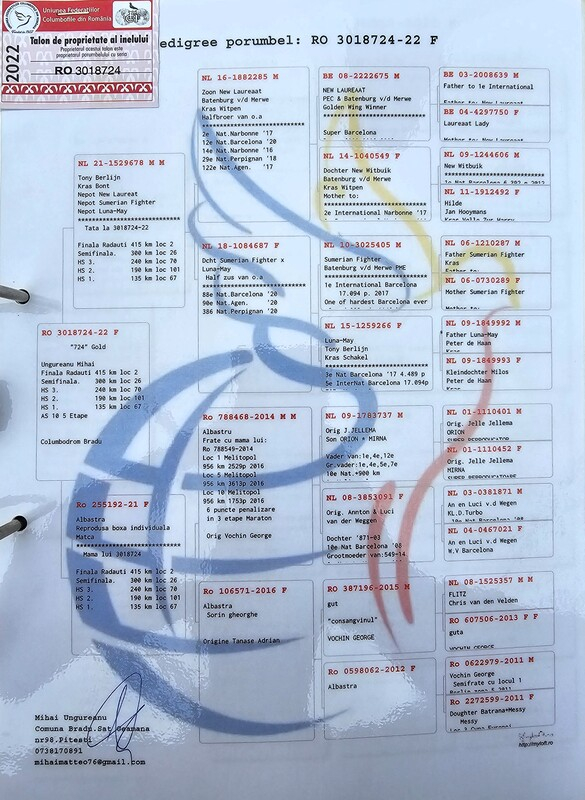 Uniunea Federațiilor
Columbofile din România
Talon de proprietate al inelului
Proprietarul acestui talon este
proprietarul porumbelului cu seria
2022
RO 3018724
edigree porumbel: RO 3018724-22 F
NL 16-1882285 M
Zoon New Laureaat
Batenburg v/d Merwe
Kras Witpen
Halfbroer van o.a
2e Nat.Narbonne '17
12e Nat.Barcelona '20
14e Nat.Narbonne '16
29e Nat.Perpignan '18
122e Nat.Agen. '17
BE 08-2222675 M
NEW LAUREAAT
PEC & Batenburg v/d Merwe
Golden Wing Winner
*****************
Super Barcelona
BE 03-2008639 M
Father to 1e International
BE 04-4297750 F
Laureaat Lady
NL 14-1040549 F
Dochter New Witbuik
Batenburg v/d Merwe
Kras Witpen
Mother to:
2e International Narbonne '17
NL 09-1244606 M
New Witbuik
NL 11-1912492 F
Hilde
Jan Hooymans
NL 21-1529678 M M
Tony Berlijn
Kras Bont
Nepot New Laureat
Nepot Sumerian Fighter
Nepot Luna-May
Tata la 3018724-22
Finala Radauti 415 km loc 2
Semifinala. 300 km loc 26
HS 3. 240 km loc 70
HS 2. 190 km loc 101
HS 1. 135 km loc 67
NL 18-1084687 F
Dcht Sumerian Fighter x
Luna-May
Half zus van o.a
88e Nat.Barcelona '20
90e Nat.Barcelona '21
386 Nat.Perpignan '20
NL 10-3025405 M
Sumerian Fighter
Batenburg v/d Merwe PME
1e International Barcelona
17.094 p. 2017
One of hardest Barcelona ever
NL 06-1210287 M
Sumerian Fighter
Kras
NL 06-0730289 F
Mother Sumerian Fighter
NL 15-1259266 F
Luna-May
Tony Berlijn
Kras Schakel
3e Nat Barcelona '17 4.489 p
5e InterNat Barcelona 17.094p
NL 09-1849992 M
Father Luna-May
Peter de Haan
NL 09-1849993 F
Kleindochter Milos
Peter de Haan
RO 3018724-22 F
"724" Gold
Ungureanu Mihai
Finala Radauti 415 km loc 2
Semifinala. 300 km loc 26
HS 3. 240 km loc 70
HS 2. 190 km loc 101
HS 1. 135 km loc 67
AS 10 5 Etape
Columbodrom Bradu
Ro 788468-2014 M M
Albastru
Frate cu mama lui:
Ro 788549-2014
Loc 1 Melitopol
956 km 2529p 2016
Loc 5 Melitopol
956 km 3613p 2016
Loc 10 Melitopol
956 km 1753p 2016
6 puncte penalizare
in 3 etape Maraton
Orig Vochin George
NL 09-1783737 M
Orig J.JELLEMA
Son ORION * MIRNA
Vader van:1e,4e,12e
Gr.vader:1e,4e,5e,7e
10e Nat.+900 km
NL 01-1110401 M
Orig. Jelle Jellema
ORION
SUPER REPRODUCATOR
NL 01-1110452 F
Orig. Jelle Jellema
MIRNA
NL 08-3853091 F
Orig. Annton & Luci
van der Weggen
Dochter '871-03
10e Nat.Barcelona '08
Grootmoeder van:549-14
NL 03-0381871 M
An en Luci v.d Wegen
KL.D.Turbo
NL 04-0467021 F
An en Luci v.d Wegen
W.V Barcelona
Ro 255192-21 F
Albastra
Reprodusa boxa individuala
Matca
Mama lui 3018724
Finala Radauti 415 km loc 2
Semifinala. 300 km loc 26
HS 3. 240 km loc 70
HS 2. 190 km loc 101
HS 1. 135 km loc 67
Ro 106571-2016 F
Albastra
Sorin gheorghe
Origine Tanase Adrian
RO 387196-2015 M
gut
"consangvinul"
VOCHIN GEORGE
NL 08-1525357 M
FLITZ
Chris van den Velden
RO 607506-2013 F F
guta
VOCHIN GEORGE
Ro 0598062-2012 F
Albastra
Ro 0622979-2011 M
Vochin George
Semifrate cu locul 1
Ro 2272599-2011 F
Doughter Batrana+Messy
Messy
Mihai Ungureanu
Comuna Bradu.Sat Geamana
nr98.Pitesti
0738170891
mihaimatteo76@gmail.com
http://myloft.ro